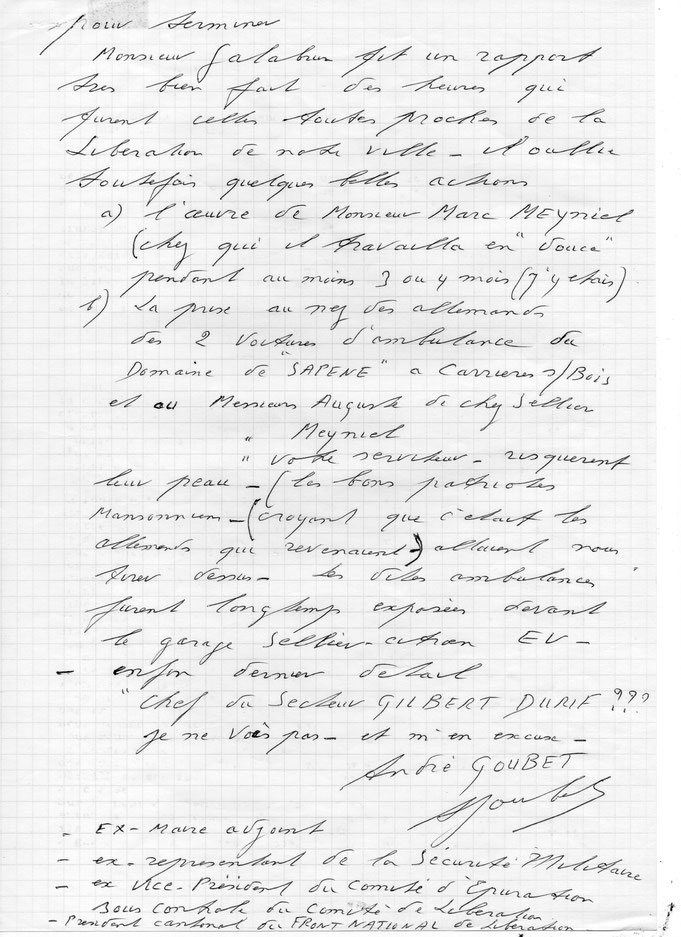 pour terminer
Monsieur Galabrun fit un rapport
très bien fait des heures qui
furent celles toutes proches de la
Liberation de notre ville - il oublie
toutefois quelques belles actions
a) l'œuvre de Monsieur Marc MEYNIEL
(chez qui il travailla en "douce"
pendant au moins 3 ou 4 mois (j'y etais)
b) La prise au nez des allemands
des 2 voitures d'ambulance du
Domaine de "SAPENE" a Carrieres s/Bois
et ou Messieurs Auguste de chez Sellier
" Meyniel
" votre serviteur - risquerent
leur peau - (les bons patriotes
Mansonniens - (croyant que c'etait les
allemands qui revenaient -) allaient nous
tirer dessus - Les dites ambulances"
furent longtemps exposées devant
le garage Sellier - citroen EV -
- enfin dernier detail
"Chef du Secteur GILBERT DURIF ???
je ne vois pas - et m'en excuse -
André GOUBET
Goubet
- EX - Maire adjoint
- ex - representant de la Sécurité Militaire
- ex Vice - Président du Comité d'Epuration
sous controle du Comité de Liberation
- President cantonal du FRONT NATIONAL de Liberation -